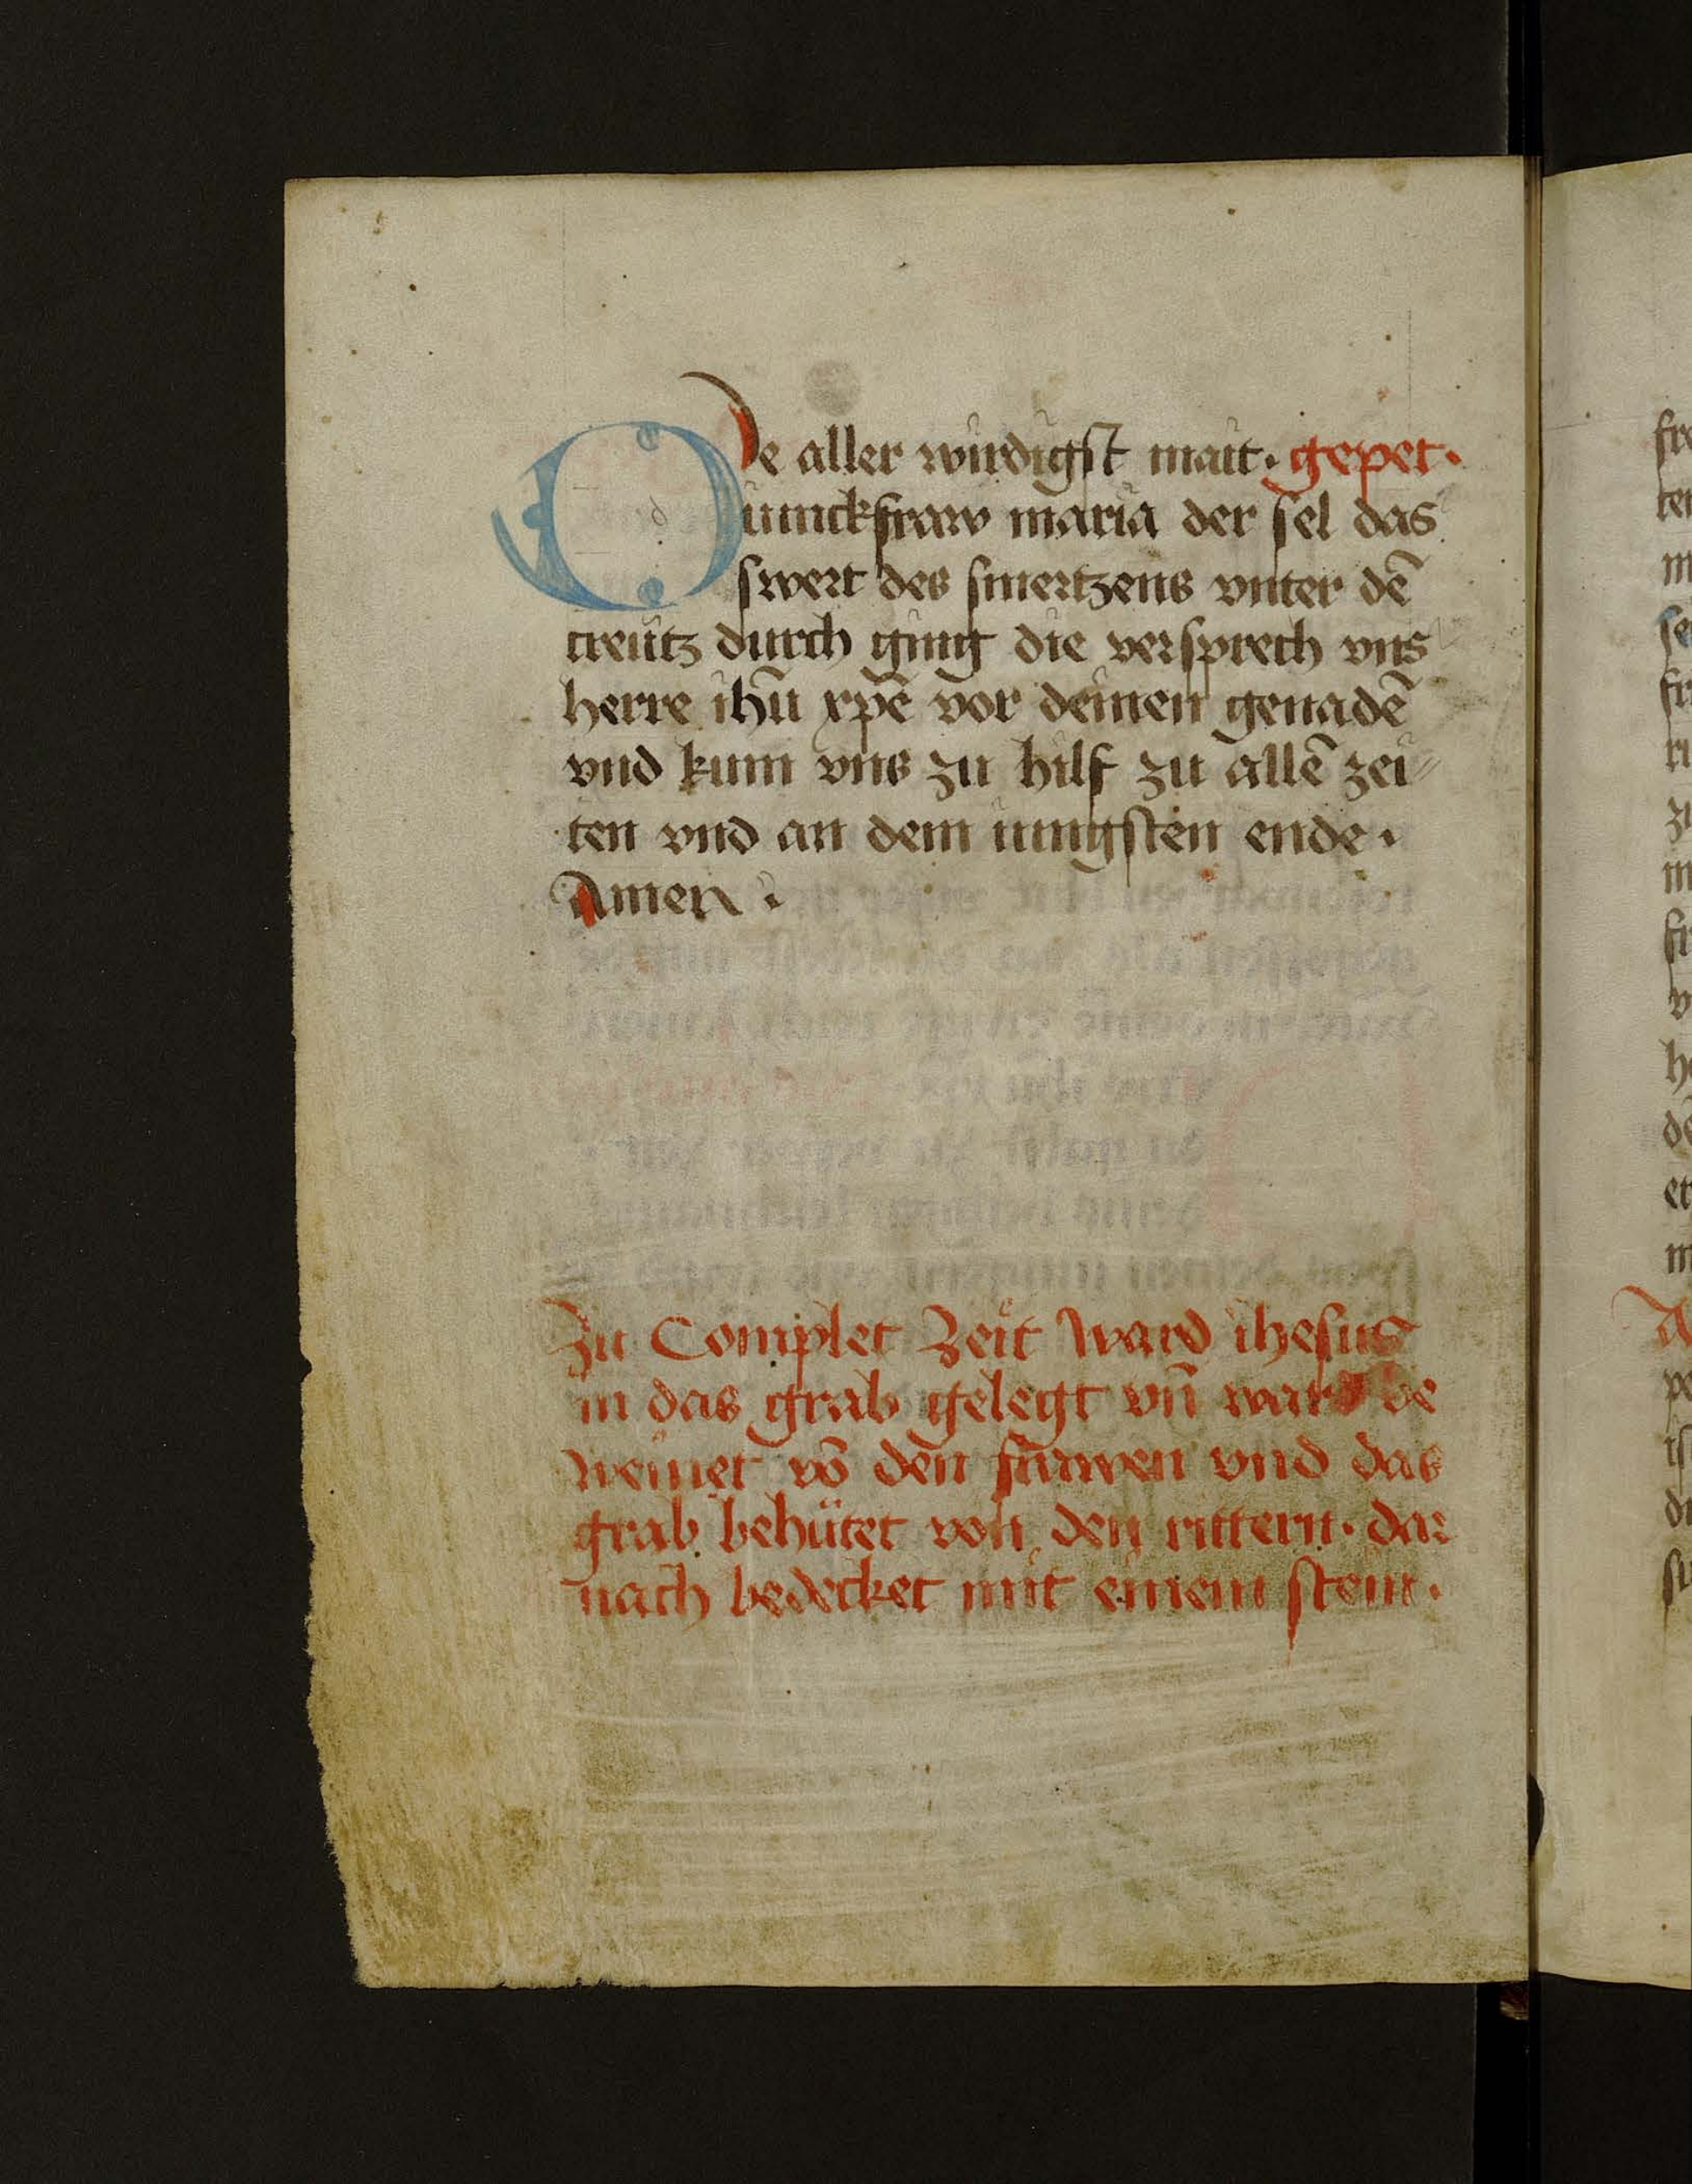 De aller wirdigst mait · gepet ·
iunckfraw maria der sel das
swert des smertzens vnter dē
creutz durch ging die versprech vns
herre ihū xpē vor deinen genadē
vnd kum vns zu hilf zu allē zei
ten vnd an dem iungsten ende ·
Amen ·
Zu Complet Zeit Ward ihesus
in das grab gelegt vn̄ ward be
weinet vō den frawen vnd das
grab behütet von den rittern · dar
nach bedecket mit einem stein ·